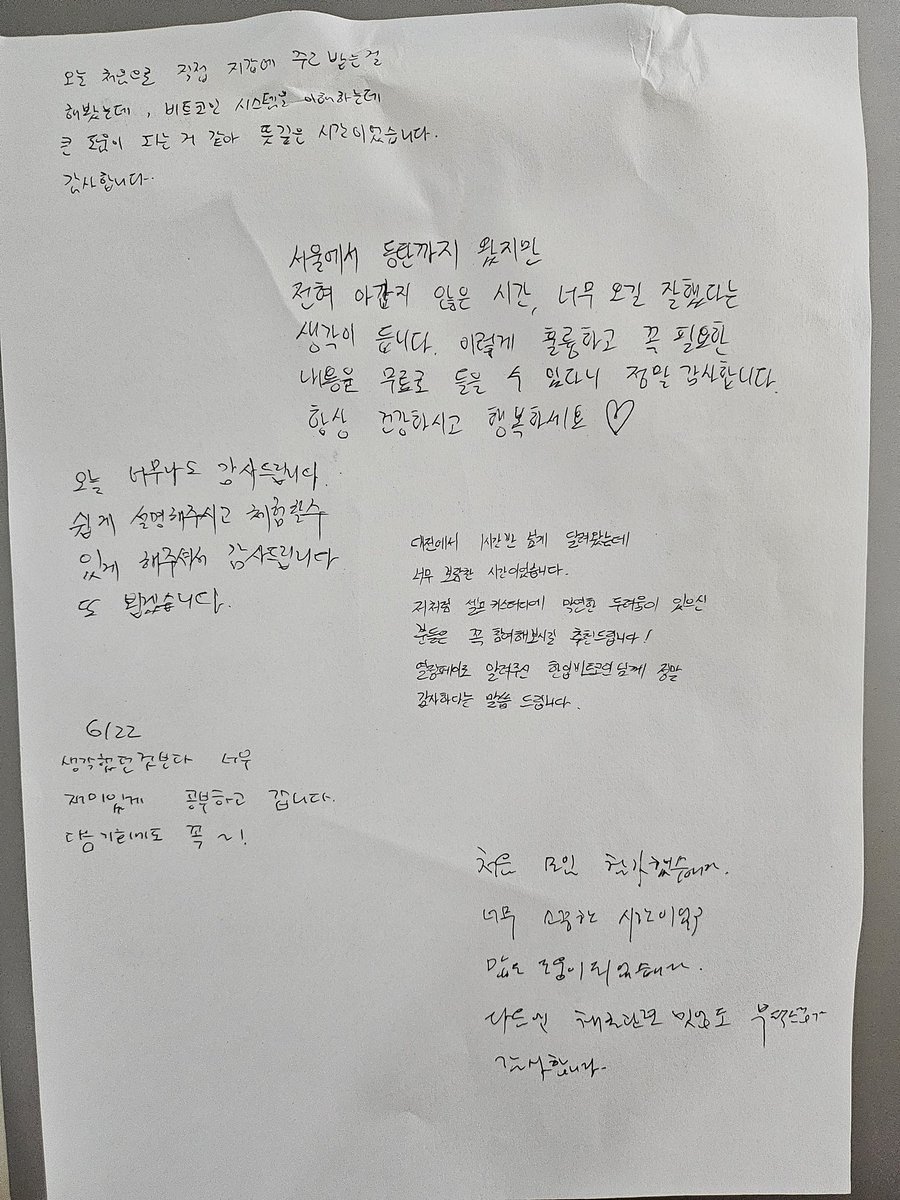 오늘 처음으로 직접 지갑에 주고 받는걸
해봤는데, 비트코인 시스템을 이해하는데
큰 도움이 되는 거 같아 뜻깊은 시간이었습니다.
감사합니다.
서울에서 동탄까지 왔지만
전혀 아깝지 않은 시간, 너무 오길 잘했다는
생각이 듭니다. 이렇게 훌륭하고 꼭 필요한
내용을 무료로 들을 수 있다니 정말 감사합니다.
항상 건강하시고 행복하세요 ♡
오늘 너무나도 감사드립니다.
쉽게 설명해주시고 체험할수
있게 해주셔서 감사드립니다
또 뵙겠습니다.
대전에서 1시간반 넘게 달려왔는데
너무 보람찬 시간이었습니다.
저처럼 셀프 커스터디에 막연한 두려움이 있으신
분들은 꼭 참여해보시길 추천드립니다!
알려주신 한입비트코인님께 정말
감사하다는 말씀 드립니다.
6/22
생각했던것보다 너무
재미있게 공부하고 갑니다.
다음기회에도 꼭 ~!
처음 모임 참가했습니다.
너무 소중한 시간이었고
많은 도움이 되었습니다.
감사합니다.